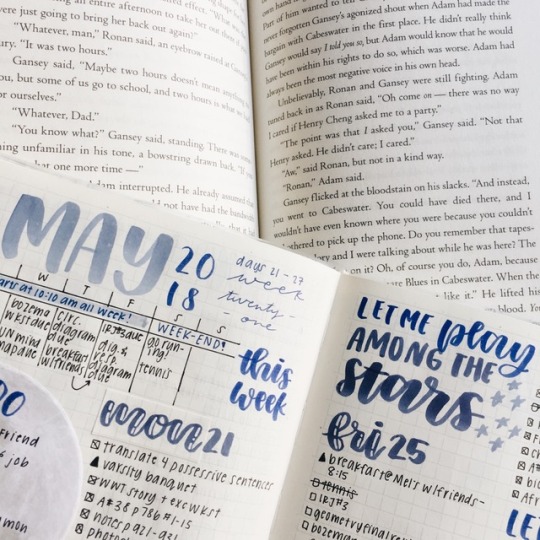 ing an entire afternoon to take her out
were just going to bring her back out again?"
"Whatever, man," Ronan said, an eyebrow raised at
"It was two hours."
Gansey said, "Maybe two hours doesn't mean anything
you, but some of us go to school, and two hours is what
for ourselves."
"Whatever, Dad."
"You know what?" Gansey said, standing. There was
unfamiliar in his tone, a bowstring drawn back. "If you
that one more time —"
Adam interrupted. He already
not have had the
Part of him wanted to tell
never forgotten Gansey's agonized shout when Adam had made the
bargain with Cabeswater in the first place. He didn't really think
Gansey would say I told you so, but Adam would know that he would
have been within his rights to do so, which was worse. Adam had
always been the most negative voice in his own head.
Unbelievably, Ronan and Gansey were still fighting. Adam
tuned back in as Ronan said, "Oh come on — there was no way
I cared if Henry Cheng asked me to a party."
"The point was that I asked you," Gansey said. "Not that
Henry asked. He didn't care; I cared."
"Aw," said Ronan, but not in a kind way.
"Ronan," Adam said.
Gansey flicked at the bloodstain on his slacks. "And instead,
you went to Cabeswater. You could have died there, and I
wouldn't have even known where you were because you couldn't
bothered to pick up the phone. Do you remember that tapes-
and I were talking about while we was here? The
on it? Oh, of course you do, Adam, because
Blues in Cabeswater. When the
like it." He lifted his
blood.
MAY
20
18
days 21-27
week
twenty-
one
W T F S S
at 10:10 am all week!
WEEK-END!
bozema
wkst due
UN mind
map due
circ.
diagram
due
breakfast
w/friends
IRJ#3 due
dig. &
resp.
diagram
due
go run-
ing!
tennis
this
week
DO
friend
job
mon
mon 21
translate 4 possessive sentences
varsity banquet
WWT story + exc wkst
A#38 p786 #1-15
notes p 921-931
LET ME play
AMONG THE
stars
fri 25
breakfast@Mel's w/friends-
8:15
tennis
IRJ#3
geometry final rev
bozeman
LET